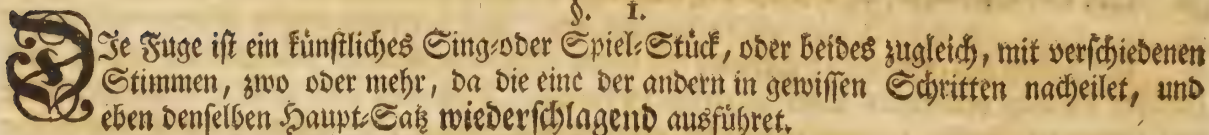 §. 1.
DIe Fuge ist ein künstliches Sing-oder Spiel-Stück, oder beides zugleich, mit verschiedenen
Stimmen, zwo oder mehr, da die eine der andern in gewissen Schritten nacheilet, und
eben denselben Haupt-Satz wiederschlagend ausführet.